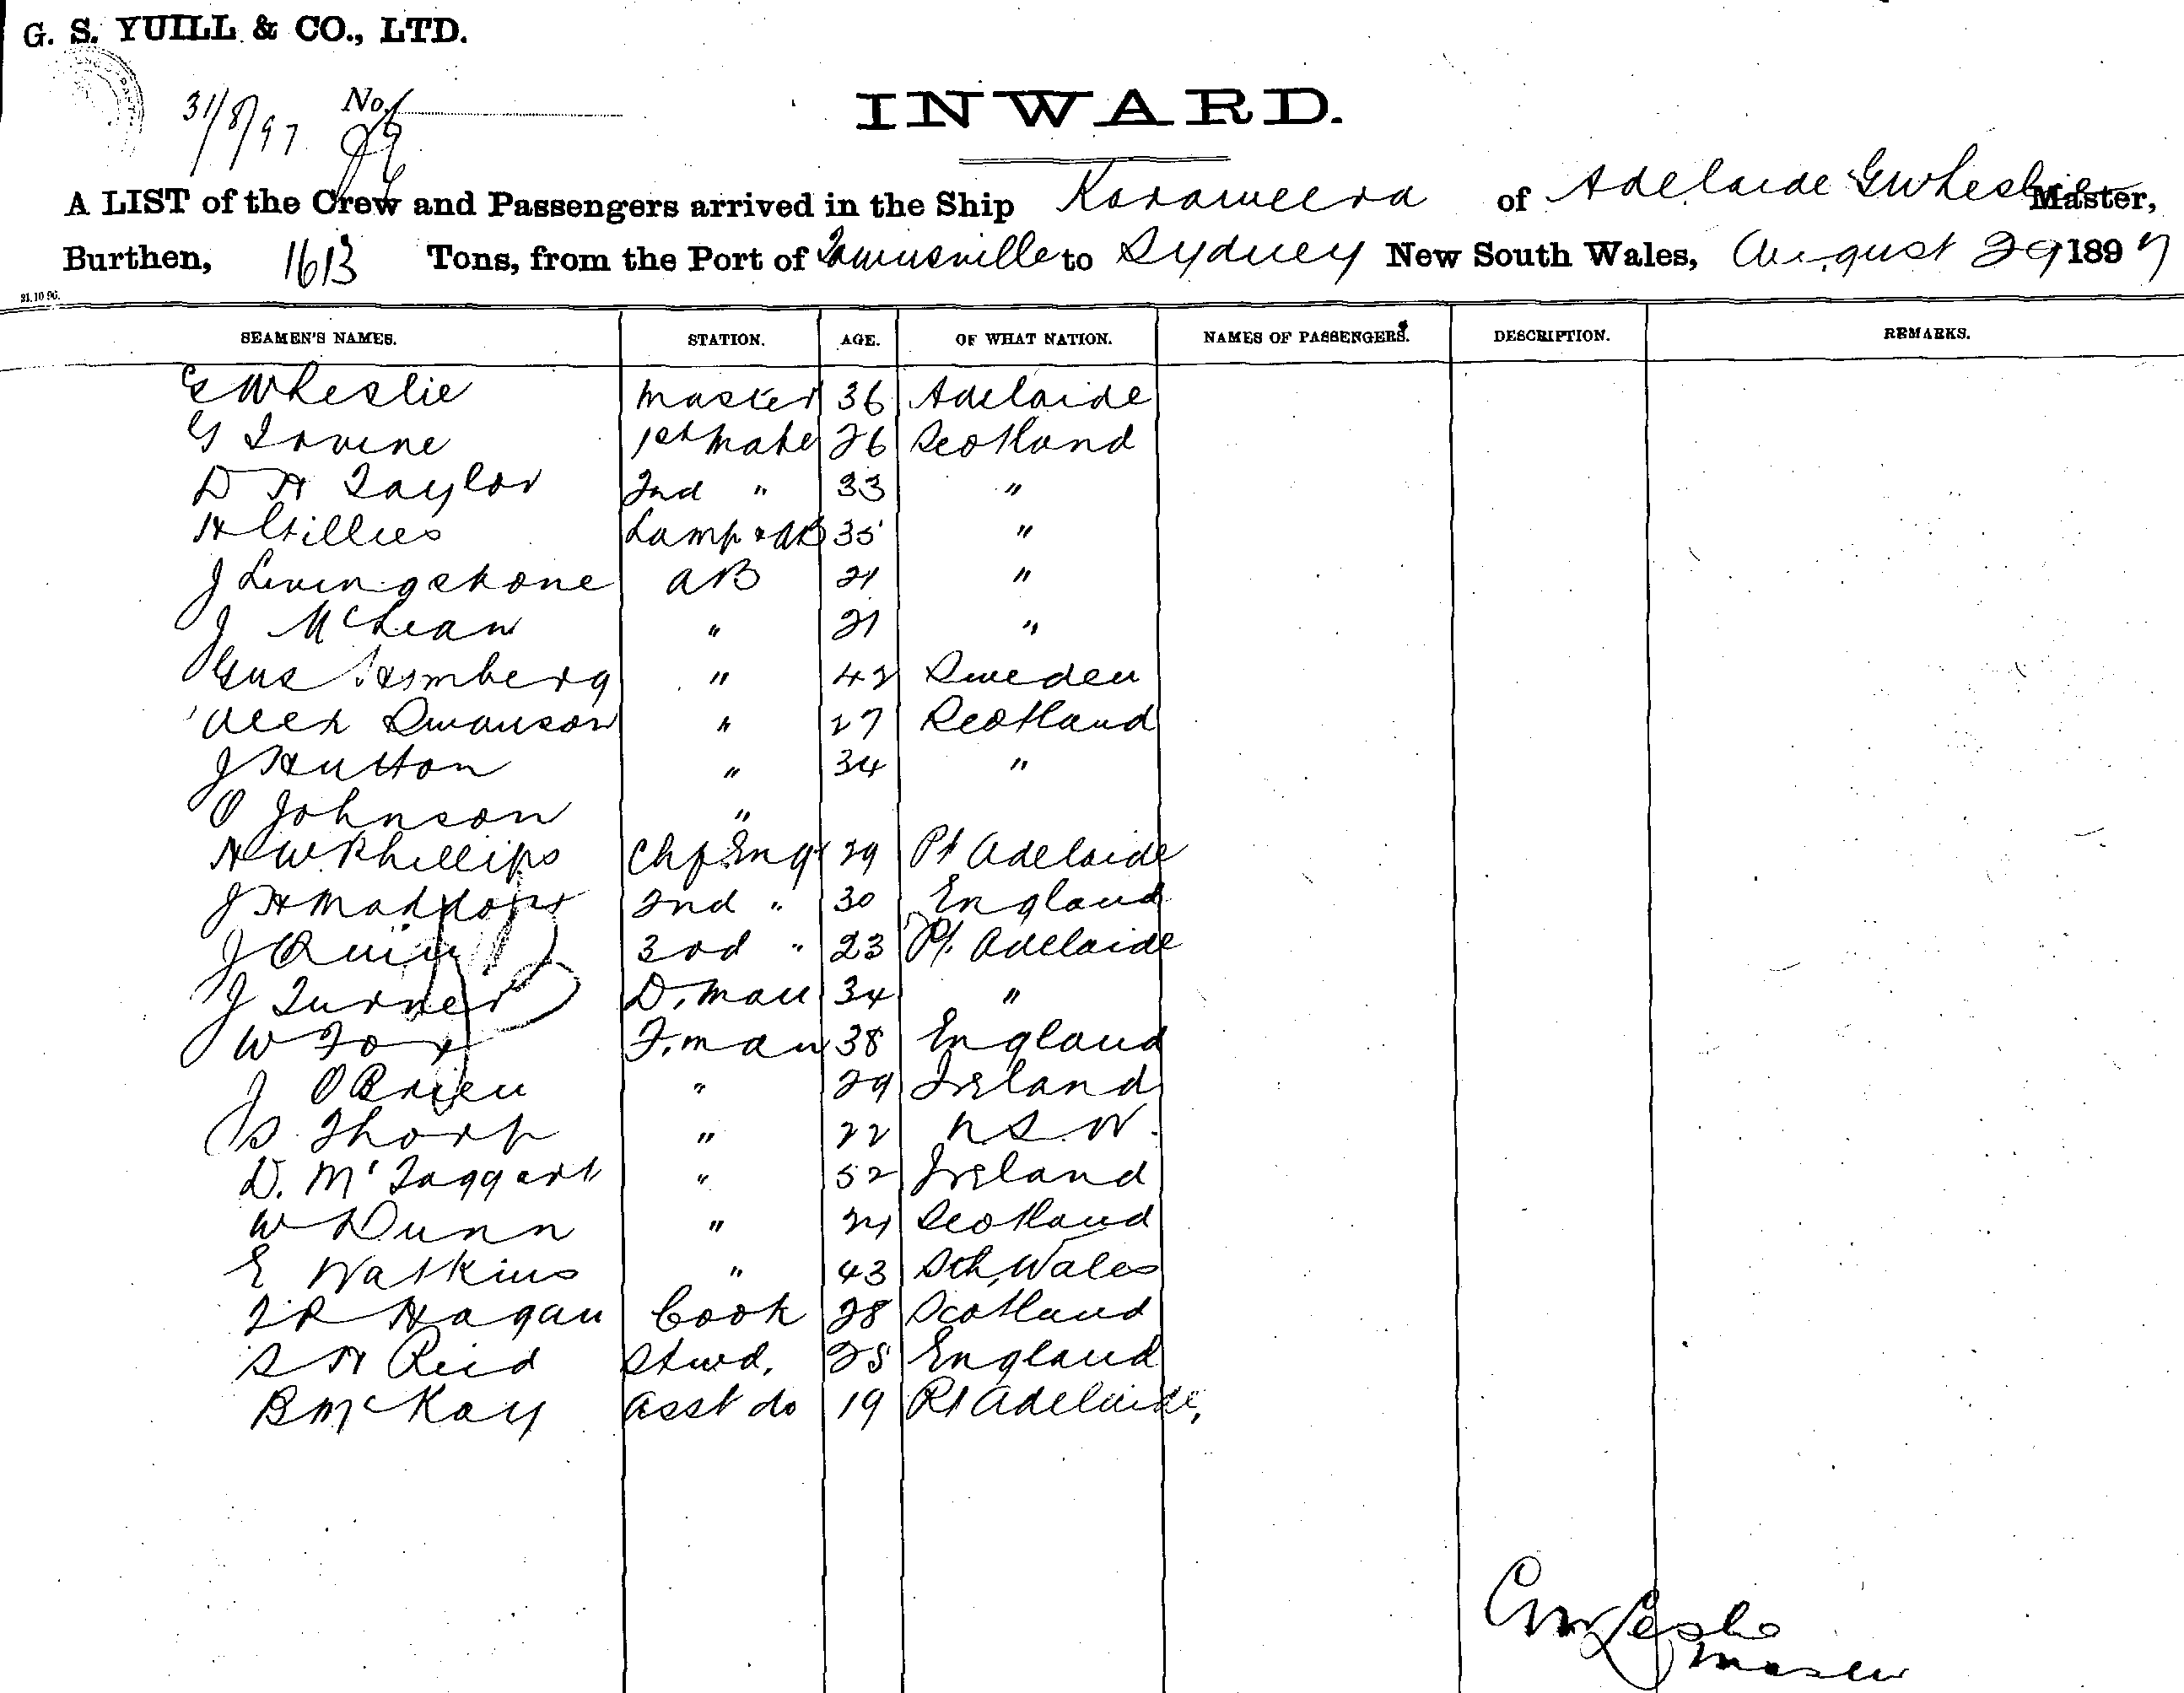 G. S. YUILL & CO., LTD.
31/8/97 No.
INWARD.
A LIST of the Crew and Passengers arrived in the Ship Kararweera of Adelaide G W Leslie Master,
Burthen, 1613 Tons, from the Port of Townsville to Sydney New South Wales, August 29 1897
21.10.96.
SEAMEN'S NAMES. STATION. AGE. OF WHAT NATION. NAMES OF PASSENGERS. DESCRIPTION. REMARKS.
G W Leslie Master 36 Adelaide
G Irvine 1st Mate 26 Scotland
D H Taylor 2nd " 33 "
H Gillies Lamp & AB 35 "
J Livingstone AB 21 "
J McLean " 21 "
Gus " 42 Sweden
Alex Swanson " 27 Scotland
J Hutton " 34 "
O Johnson "
H W Phillips Chf Engr 29 Pt Adelaide
J H Maddox 2nd " 30 England
J Quin 3rd " 23 Pt. Adelaide
J Turner D. man 34 "
W Fox F. man 38 England
J O Brien " 29 Ireland
S Thorp " 22 N. S. W.
D. McTaggart " 52 Ireland
W Dunn " 21 Scotland
E Watkins " 43 Sth. Wales
T R Hagan Cook 28 Scotland
S H Reid Stwd. 25 England
B McKay Asst do 19 Pt Adelaide,
G W Leslie
Master